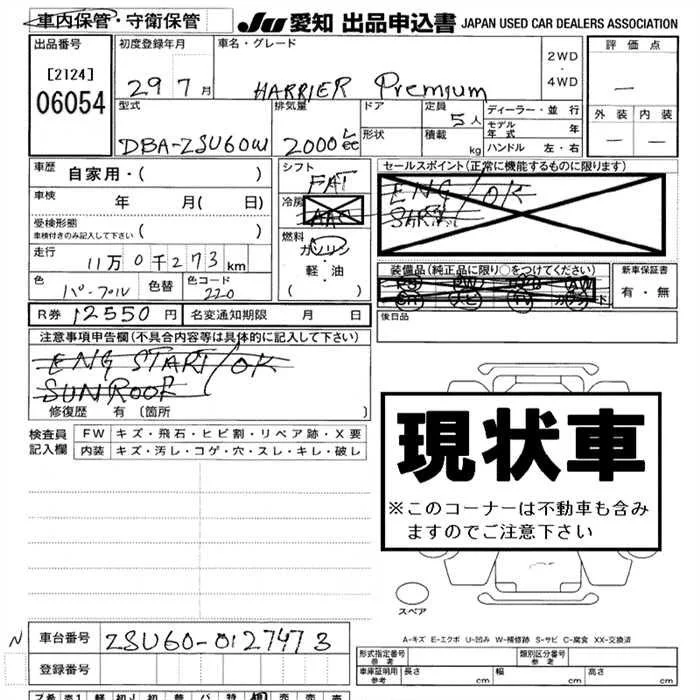 車内保管・守衛保管
JU 愛知 出品申込書 JAPAN USED CAR DEALERS ASSOCIATION
出品番号 初度登録年月 車名・グレード 2WD ・ 4WD 評価点
[2124]
06054
29 7月 HARRIER Premium —
外装 内装
— —
型式 排気量 ドア 定員 5人 ディーラー・並行
DBA-ZSU60W 2000 cc 形状 積載 kg モデル年式 年
ハンドル 左・右
車歴 自家用・( )
シフト FAT
セールスポイント(正常に機能するものに限ります)
ENG/OK
車検 年 月( 日)
冷房 AAC
受検形態
車検付きのみ記入して下さい ( )
燃料 ガソリン・軽・油 ( )
走行 11万0千273km
装備品(純正品に限り○をつけてください) 新車保証書
有・無
色 パープル 色替 色コード 220
R券 12550円 名変通知期限 月 日
後日品
注意事項申告欄(不具合内容等は具体的に記入して下さい)
ENG START/OK
SUNROOF
修復歴 有 (箇所 )
検査員記入欄
FW キズ・飛石・ヒビ割・リペア跡・X要
内装 キズ・汚レ・コゲ・穴・スレ・キレ・破レ
現状車
※このコーナーは不動車も含み
ますのでご注意下さい
スペア
A-キズ E-エクボ U-凹み W-補修跡 S-サビ C-腐食 XX-交換済
N 車台番号 ZSU60-0127473
登録番号
形式指定番号 参考 類別区分番号 参考
車庫証明用 参考 長さ cm 幅 cm 高さ cm